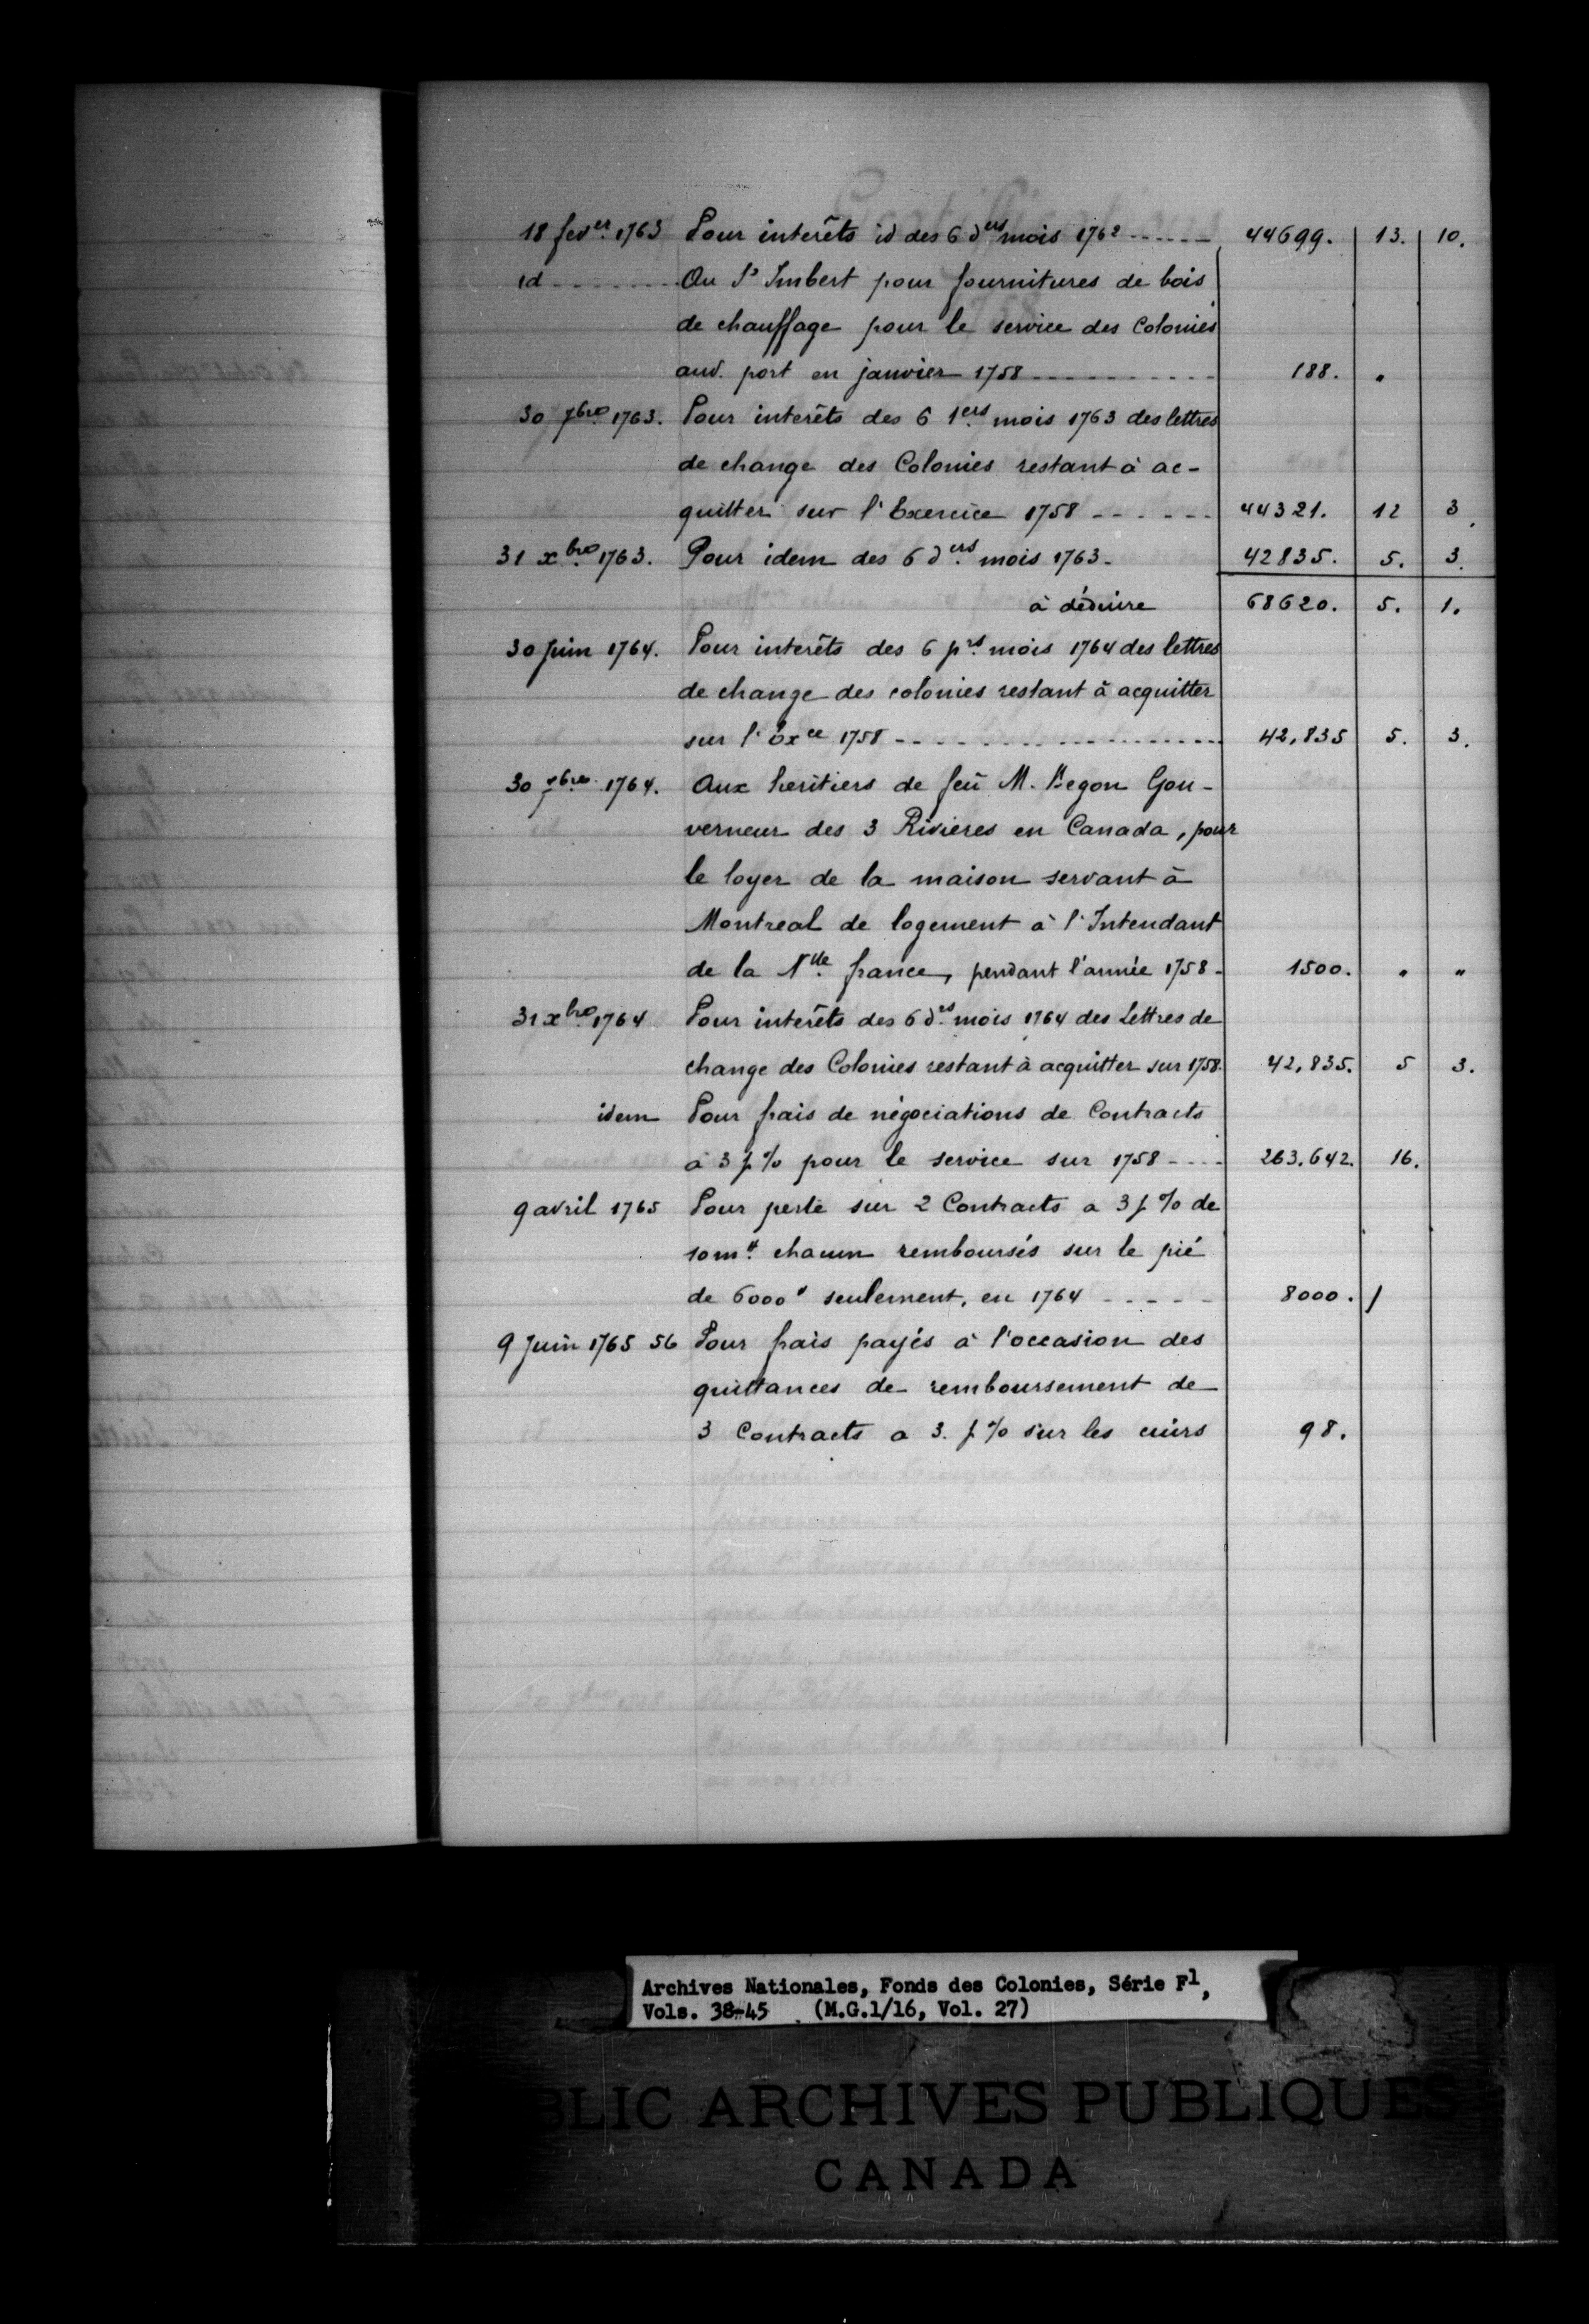 18 fev.er 1763 Pour interêts id des 6 d.ers mois 1762 ------ 44699. 13. 10.
id -------- Au Sr Imbert pour fournitures de bois
de chauffage pour le service des Colonies
aud. port en janvier 1758 ---------- 188. "
30 7bre. 1763. Pour interêts des 6 1ers. mois 1763 des lettres
de change des Colonies restant à ac-
quitter sur l'Exercice 1758 ------ 44321. 12 3.
31 xbre. 1763. Pour idem des 6 d.ers mois 1763. 42835. 5. 3.
à déduire 68620. 5. 1.
30 Juin 1764. Pour interêts des 6 prs. mois 1764 des lettres
de change des colonies restant à acquitter
sur l'Exce 1758 ------------------ 42,835 5. 3.
30 7bre. 1764. Aux heritiers de feu M. Begon Gou-
verneur des 3 Rivieres en Canada, pour
le loyer de la maison servant à
Montreal de logement à l'Intendant
de la Nlle. france, pendant l'année 1758 - 1500. " "
31 xbre. 1764 Pour interêts des 6 drs. mois 1764 des Lettres de
change des Colonies restant à acquitter sur 1758. 42,835. 5 3.
idem Pour frais de négociations de Contracts
à 3 p % pour le service sur 1758 ---- 263.642. 16.
9 avril 1765 Pour perte sur 2 Contracts a 3 p % de
10m# chacun remboursés sur le pié
de 6000# seulement, en 1764 ----- 8000. /
9 Juin 1765 56 Pour frais payés à l'occasion des
quittances de remboursement de
3 Contracts a 3. p % sur les cuirs 98.
Archives Nationales, Fonds des Colonies, Série F1,
Vols. 38-45 (M.G.1/16, Vol. 27)
BLIC ARCHIVES PUBLIQUES
CANADA